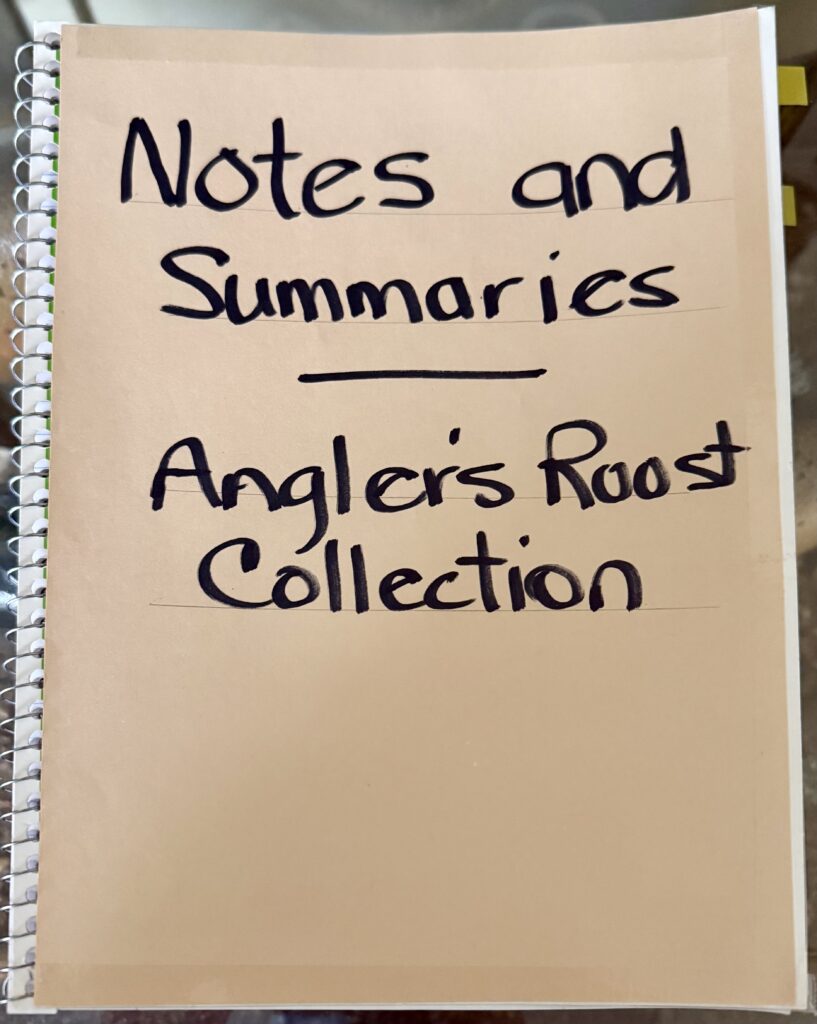 Notes and
Summaries
Angler's Roost
Collection